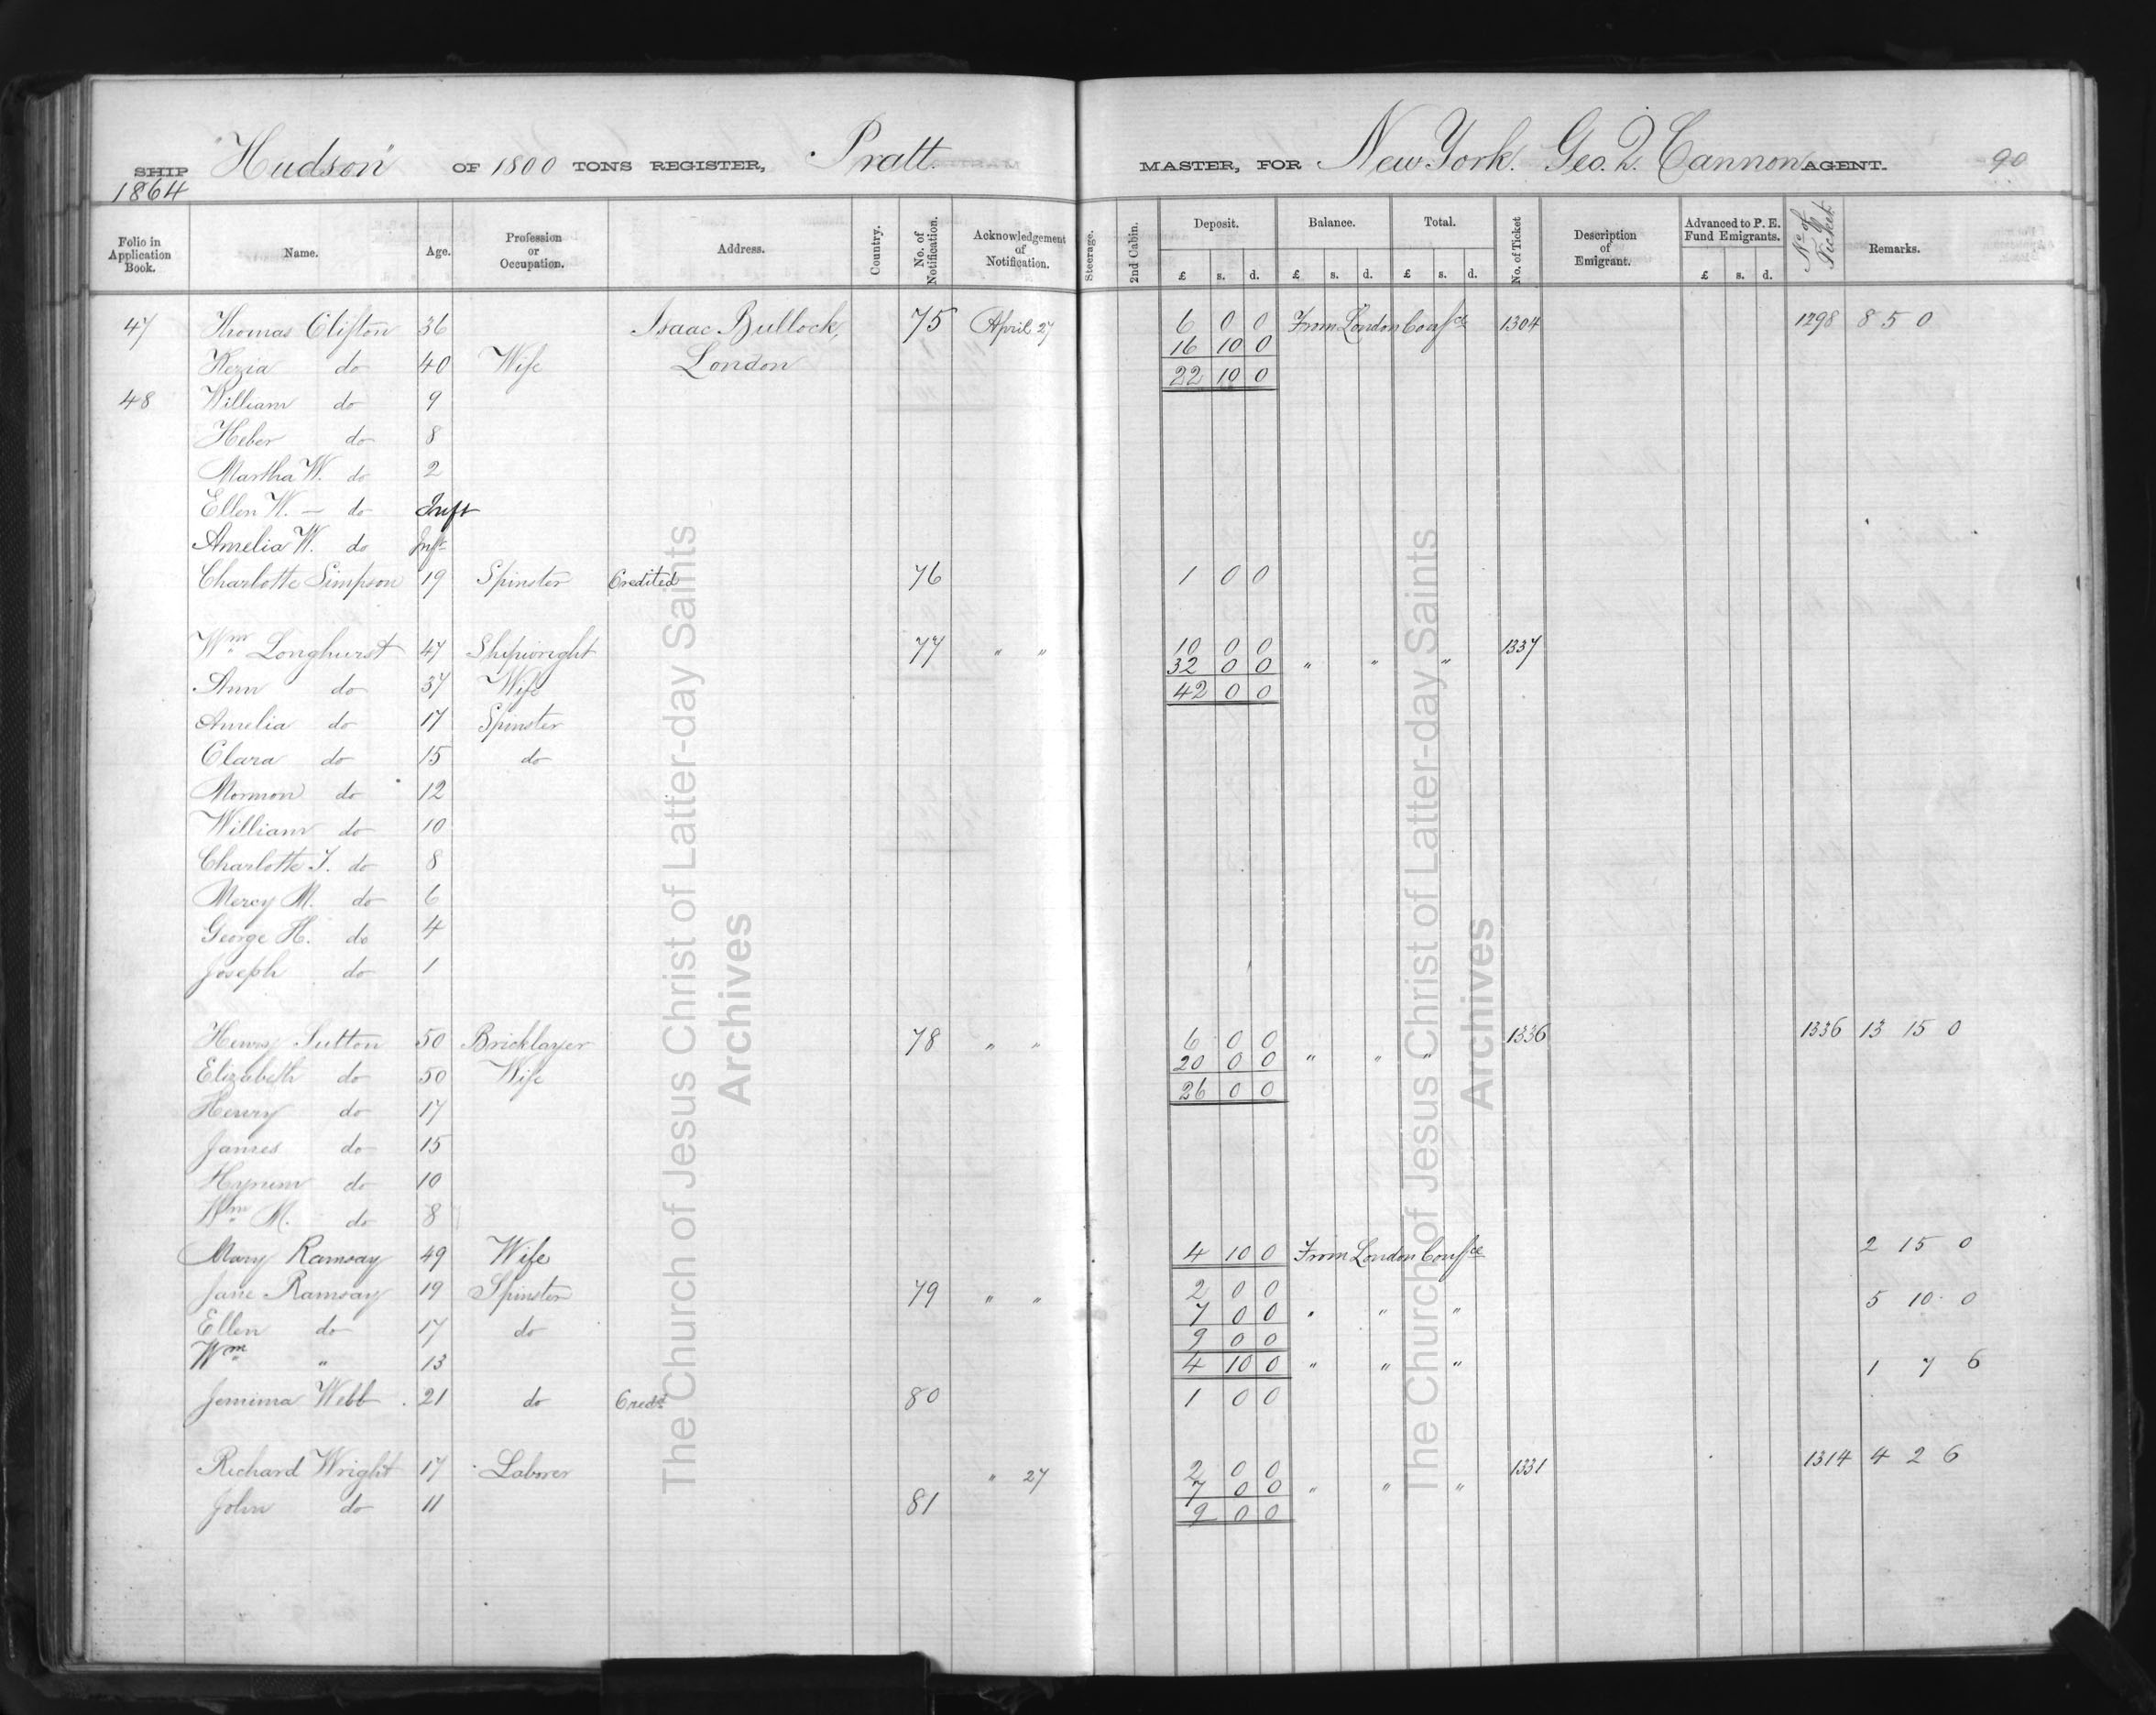 SHIP "Hudson" OF 1800 TONS REGISTER, Pratt. MASTER, FOR New York. Geo. Q. Cannon AGENT. 90
1864
Folio in Application Book. Name. Age. Profession or Occupation. Address. Country. No. of Notification. Acknowledgement of Notification. Steerage. 2nd Cabin. Deposit. Balance. Total. No. of Ticket Description of Emigrant. Advanced to P. E. Fund Emigrants. No of Ticket Remarks.
£ s. d. £ s. d. £ s. d. £ s. d.
47 Thomas Clifton 36 Isaac Bullock, 75 April 27 6 0 0 From London Confce 1304 1298 8 5 0
16 10 0
Kezia do 40 Wife London 22 10 0
48 William do 9
Heber do 8
Martha W. do 2
Ellen W. — do Inft
Amelia W. do Inft
Charlotte Simpson 19 Spinster Credited 76 1 0 0
Wm Longhurst 47 Shipwright 77 " " 10 0 0 1337
32 0 0 " " "
Ann do 37 Wife 42 0 0
Amelia do 17 Spinster
Clara do 15 do
Mormon do 12
William do 10
Charlotte J. do 8
Mercy M. do 6
George H. do 4
Joseph do 1
Henry Sutton 50 Bricklayer 78 " " 6 0 0 1336 1336 13 15 0
20 0 0 " " "
Elizabeth do 50 Wife 26 0 0
Henry do 17
James do 15
Hyrum do 10
Wm M. do 8
Mary Ramsay 49 Wife 4 10 0 From London Confce 2 15 0
Jane Ramsay 19 Spinster 79 " " 2 0 0 5 10 0
7 0 0 " " "
Ellen do 17 do 9 0 0
Wm " 13 4 10 0 " " " 1 7 6
Jemima Webb 21 do Credt 80 1 0 0
Richard Wright 17 Laborer " 27 2 0 0 1331 1314 4 2 6
7 0 0 " " "
John do 11 81 9 0 0
The Church of Jesus Christ of Latter-day Saints
Archives
The Church of Jesus Christ of Latter-day Saints
Archives